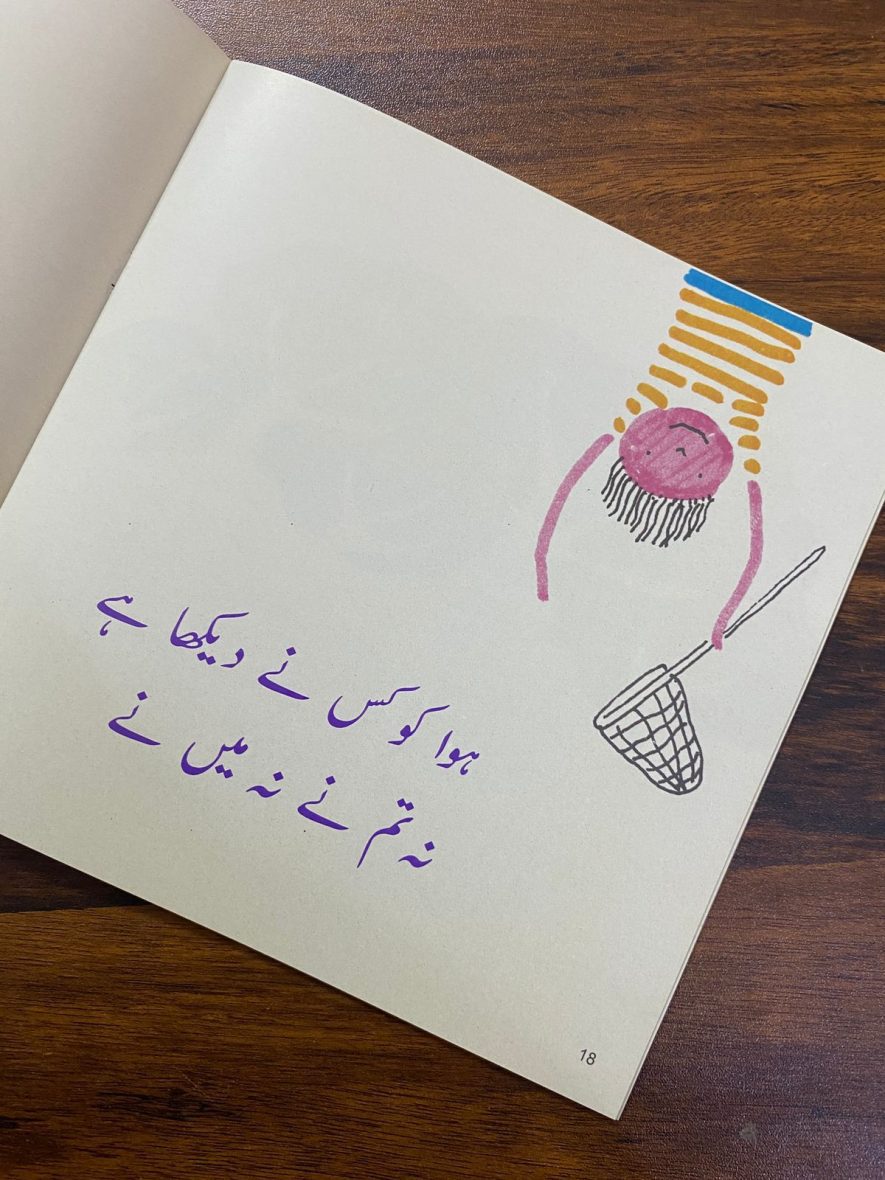 ہوا کو کس نے دیکھا ہے
نہ تم نے نہ میں نے
18